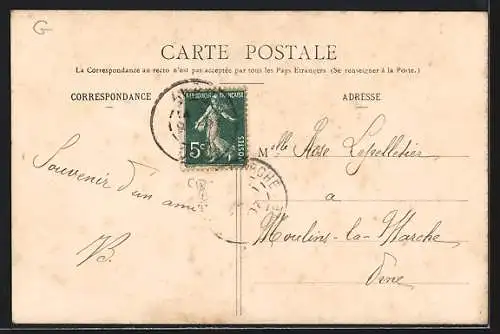 G
CARTE POSTALE
La Correspondance au recto n'est pas acceptée par tous les Pays Etrangers (Se renseigner à la Poste.)
CORRESPONDANCE
ADRESSE
REPUBLIQUE FRANÇAISE
5c
POSTES
Souvenir d'un ami
VB.
Mlle Rose Lepelletier
a
Moulins-la-Marche
Orne
RCHE